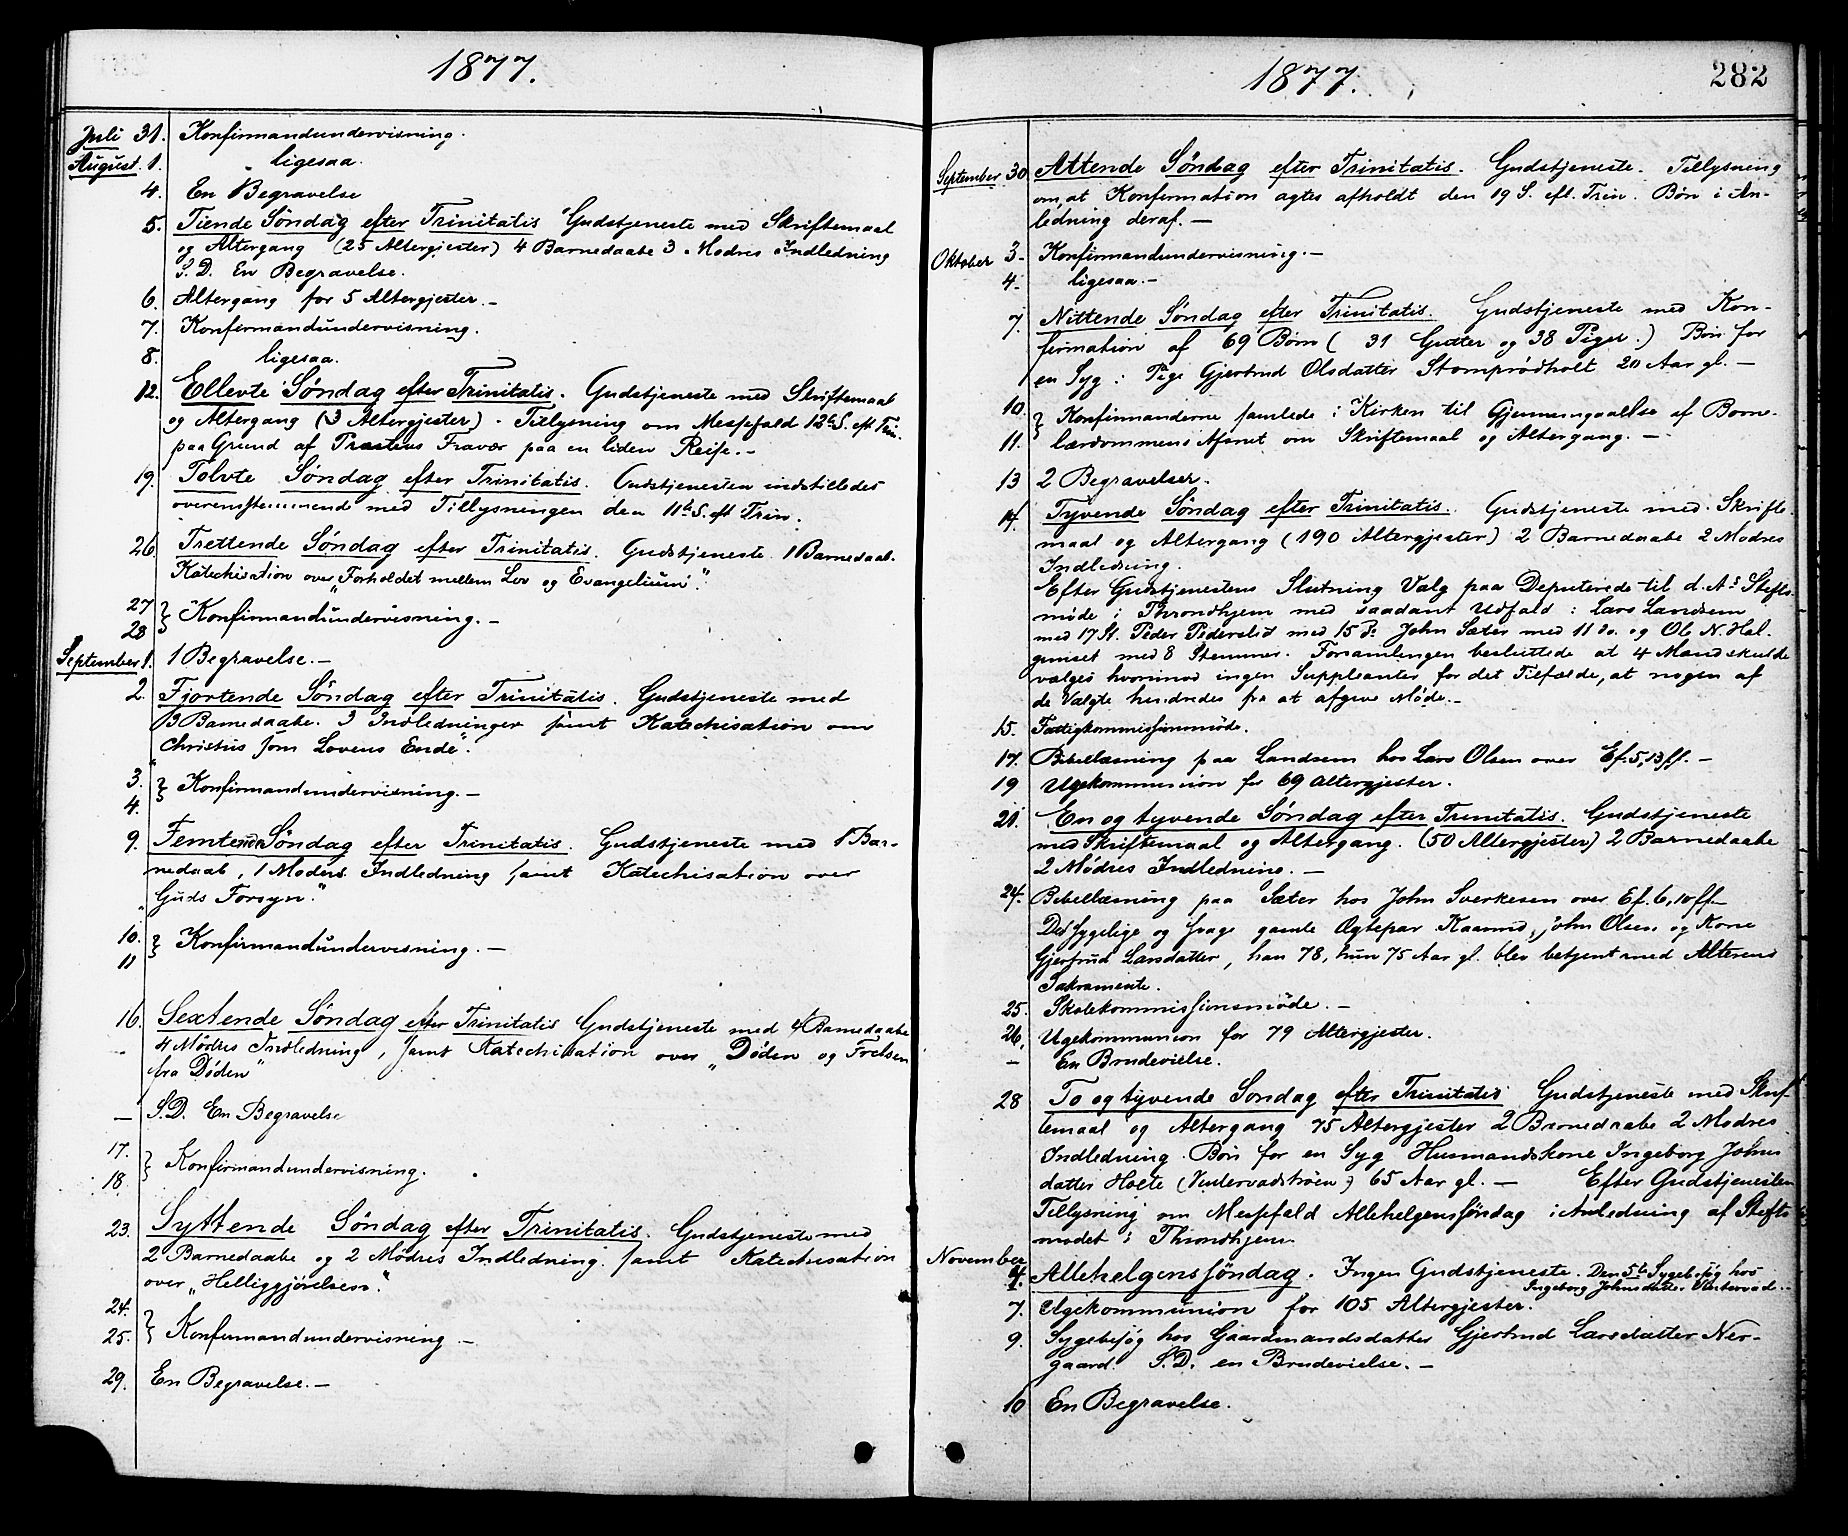 1877.
Juli 31. Konfirmandundervisning.
August 1. ligesaa.
4. En Begravelse
5. Tiende Søndag efter Trinitatis Gudstjeneste med Skriftemaal
og Altergang (25 Altergjester) 4 Barnedaabe 3 Mødres Indledning
S. D. En Begravelse.
6. Altergang for 5 Altergjester.-
7. Konfirmandundervisning.
8. ligesaa.
12. Ellevte Søndag efter Trinitatis. Gudstjeneste med Skriftemaal
og Altergang (3 Altergjester) - Tillysning om Messefald 12te S. eft Trin.
paa Grund af Præstens Fravær paa en liden Reise.-
19. Tolvte Søndag efter Trinitatis. Gudstjenesten indstilledes
overensstemmend med Tillysningen den 11te S. eft Trin.
26. Trettende Søndag efter Trinitatis. Gudstjeneste 1 Barnedaab.
Katechisation over „Forholdet mellem Lov og Evangelium“.
27 } Konfirmandundervisning.-
28
September 1. 1 Begravelse.-
2. Fjortende Søndag efter Trinitatis. Gudstjeneste med
3 Barnedaabe. 3 Indledninger samt Katechisation om
„Christus som Lovens Ende“.
3. } Konfirmandundervisning.-
4.
9. Femtende Søndag efter Trinitatis. Gudstjeneste med 1 Bar-
nedaab, 1 Moders Indledning samt Katechisation over
„Guds Forsyn.“
10. } Konfirmandundervisning.-
11
16. Sextende Søndag efter Trinitatis Gudstjeneste med 4 Barnedaabe
4 Mødres Indledning, samt Katechisation over „Døden og Frelsen
fra Døden“
- S.D. En Begravelse
17. } Konfirmandundervisning.
18.
23. Syttende Søndag efter Trinitatis. Gudstjeneste med
2 Barnedaabe og 2 Mødres Indledning. samt Katechisation
over „Helliggjørelsen“.
24. } Konfirmandundervisning.-
25.
29. En Begravelse.-
1877. 282
September 30 Attende Søndag efter Trinitatis. Gudstjeneste. Tillysning
om, at Konfirmation agtes afholdt den 19 S. eft. Trin. Bøn i An-
ledning deraf.-
Oktober 3- Konfirmandundervisning.-
4- ligesaa.-
7. Nittende Søndag efter Trinitatis. Gudstjeneste med Kon-
firmation af 69 Børn (31 Gutter og 38 Piger.) Bøn for
en Syg: Pige Gjertrud Olsdatter Stomprødholt 20 Aar gl.-
10. } Konfirmanderne samlede i Kirken til Gjennemgaaelse af Barne-
11. lærdommens Afsnit om Skriftemaal og Altergang.-
13 2 Begravelser.
14. Tyvende Søndag efter Trinitatis. Gudstjeneste med Skrifte-
maal og Altergang (190 Altergjester) 2 Barnedaabe 2 Mødres
Indledning.
Efter Gudstjenestens Slutning Valg paa Deputerede til d. A's Stifts-
møde i Throndhjem med saadant Udfald: Lars Landsem
med 17 St. Peder Pederslid med 15 do John Sæter med 11 do. og Ole N. Hal-
gunset med 8 Stemmer. Forsamlingen besluttede at 4 Mand skulde
vælges hvorimod ingen Suppleanter for det Tilfælde, at nogen af
de Valgte hindredes fra at afgive Møde.-
15. Fattigkommissionsmøde.
17. Bibellæsning paa Landsem hos Lars Olsen over Ef. 5, 13 ff.-
19 Ugekommunion for 69 Altergjester.
21. En og tyvende Søndag efter Trinitatis. Gudstjeneste
med Skriftemaal og Altergang. (50 Altergjester) 2 Barnedaabe
2 Mødres Indledning.-
24. Bibellæsning paa Sæter hos John Sverkesen over Ef. 6, 10 ff.-
Det sygelige og svage gamle Ægtepar John Olsen og Kone
Gjertrud Larsdatter, han 78, hun 75 Aar gl. blev betjent med Alterens
Sakramente.
25. Skolekommissionsmøde.-
26. Ugekommunion for 79 Altergjester.
- En Brudevielse.
28 To og tyvende Søndag efter Trinitatis Gudstjeneste med Skrif-
temaal og Altergang 75 Altergjester 2 Barnedaabe 2 Mødres
Indledning. Bøn for en Syg Husmandskone Ingeborg Johns
datter Holte 65 Aar gl.- Efter Gudstjenesten
Tillysning om Messefald Allehelgenssøndag i Anledning af Stifts
mødet i Throndhjem.
November 4. Allehelgenssøndag. Ingen Gudstjeneste. Den 5te Sygebesøg hos
Ingeborg Johnsdatter
7. Ugekommunion for 105 Altergjester.
9. Sygebesøg hos Gaardmandsdatter Gjertrud Larsdatter Ner-
gaard. S.D. en Brudevielse.-
10 En Begravelse.